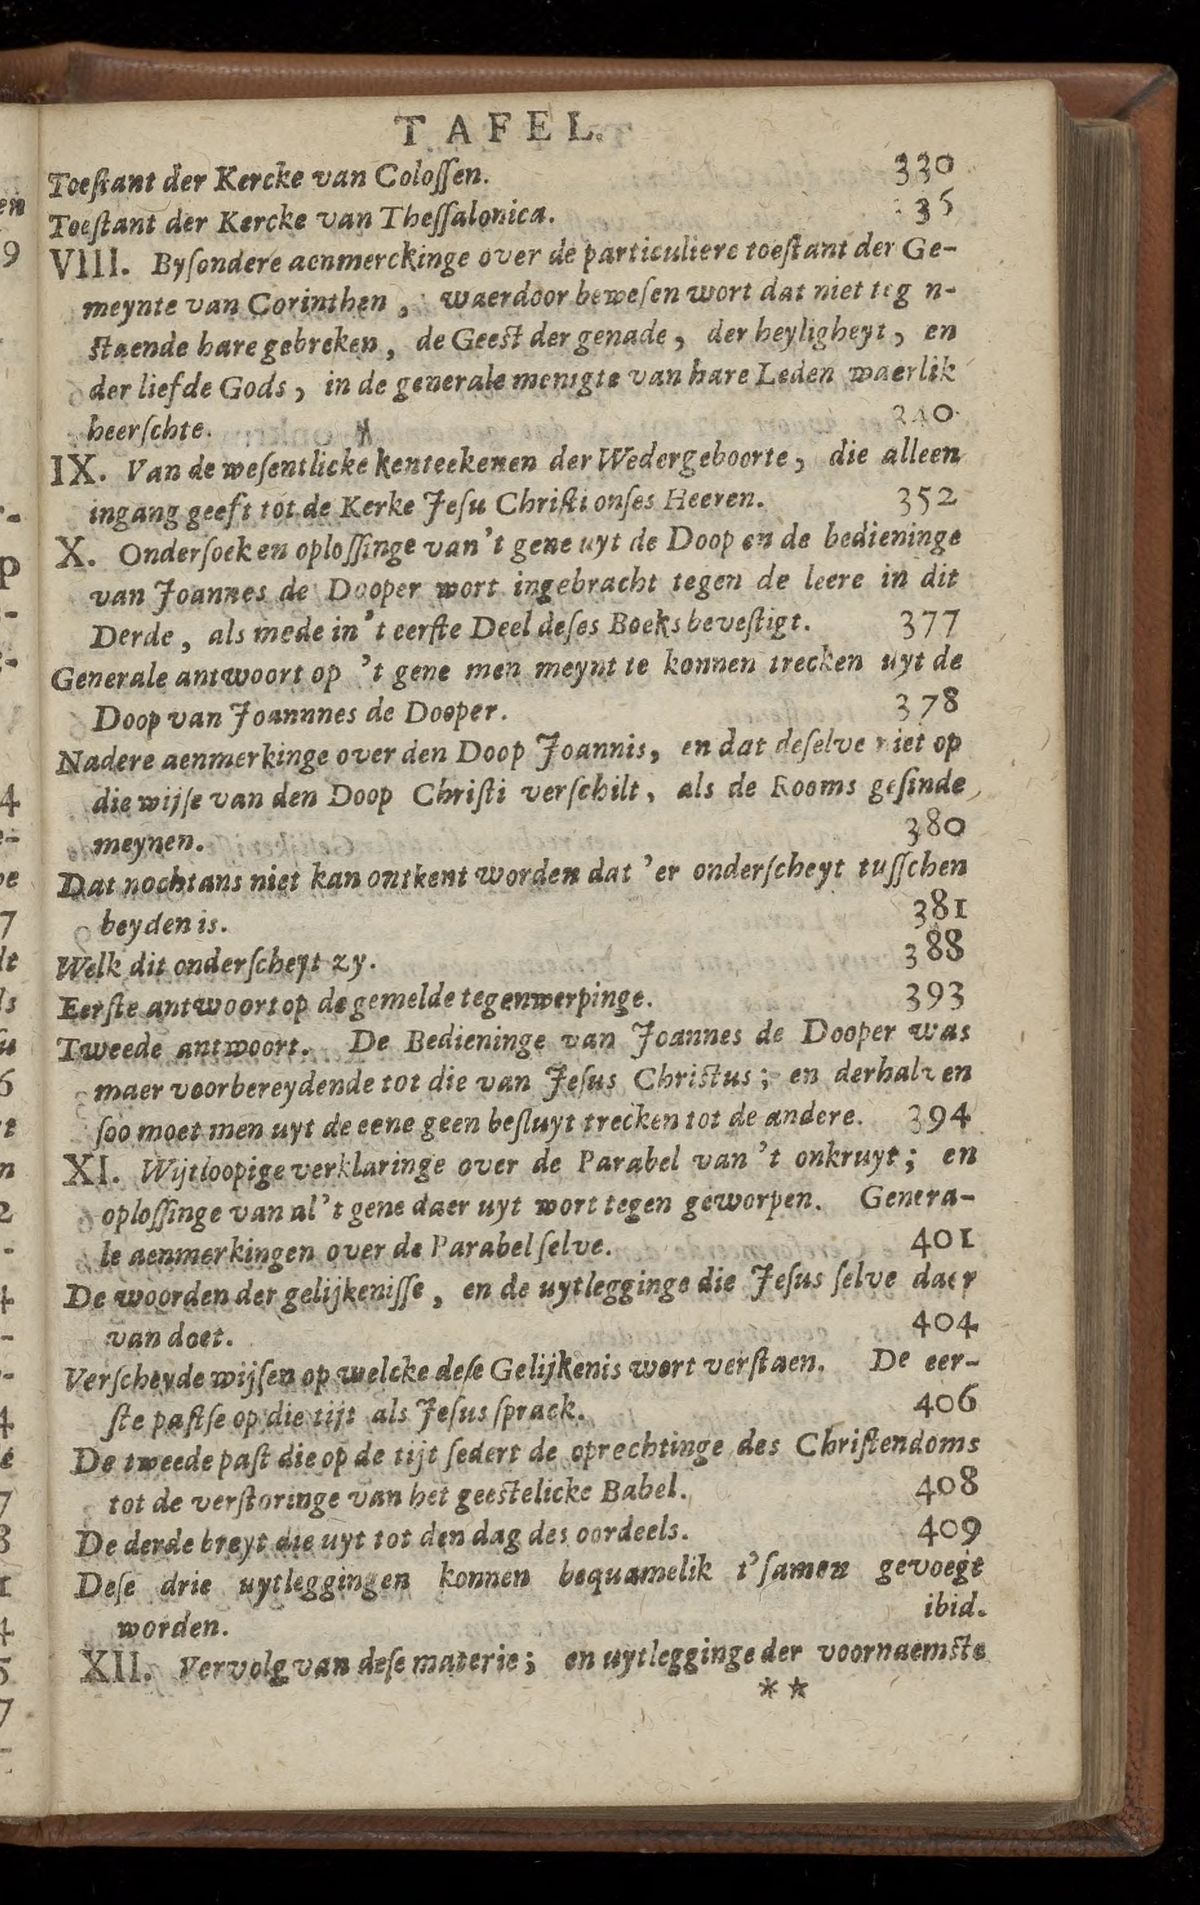 TAFEL.
Toestant der Kercke van Colossen. 330
Toestant der Kercke van Thessalonica. 335
VIII. Bysondere aenmerckinge over de particuliere toestant der Ge-
meynte van Corinthen, waerdoor bewesen wort dat niet teg n-
staende hare gebreken, de Geest der genade, der heyligheyt, en
der liefde Gods, in de generale menigte van hare Leden waerlik
heerschte. 340
IX. Van de wesentlicke kenteekenen der Wedergeboorte, die alleen
ingang geeft tot de Kerke Jesu Christi onses Heeren. 352
X. Ondersoek en oplossinge van 't gene uyt de Doop en de bedieninge
van Joannes de Dooper wort ingebracht tegen de leere in dit
Derde, als mede in 't eerste Deel deses Boeks bevestigt. 377
Generale antwoort op 't gene men meynt te konnen trecken uyt de
Doop van Joannnes de Dooper. 378
Nadere aenmerkinge over den Doop Joannis, en dat deselve niet op
die wijse van den Doop Christi verschilt, als de Rooms gesinde
meynen. 380
Dat nochtans niet kan ontkent worden dat 'er onderscheyt tusschen
beyden is. 381
Welk dit onderscheyt zy. 388
Eerste antwoort op de gemelde tegenwerpinge. 393
Tweede antwoort. De Bedieninge van Joannes de Dooper was
maer voorbereydende tot die van Jesus Christus; en derhalven
soo moet men uyt de eene geen besluyt trecken tot de andere. 394
XI. Wijtloopige verklaringe over de Parabel van 't onkruyt; en
oplossinge van al 't gene daer uyt wort tegen geworpen. Genera-
le aenmerkingen over de Parabel selve. 401
De woorden der gelijkenisse, en de uytlegginge die Jesus selve daer
van doet. 404
Verscheyde wijsen op welcke dese Gelijkenis wort verstaen. De eer-
ste pastse op die tijt als Jesus sprack. 406
De tweede past die op de tijt sedert de oprechtinge des Christendoms
tot de verstoringe van het geestelicke Babel. 408
De derde breyt die uyt tot den dag des oordeels. 409
Dese drie uytleggingen konnen bequamelik t'samen gevoegt
worden. ibid.
XII. Vervolg van dese materie; en uytlegginge der voornaemste
**